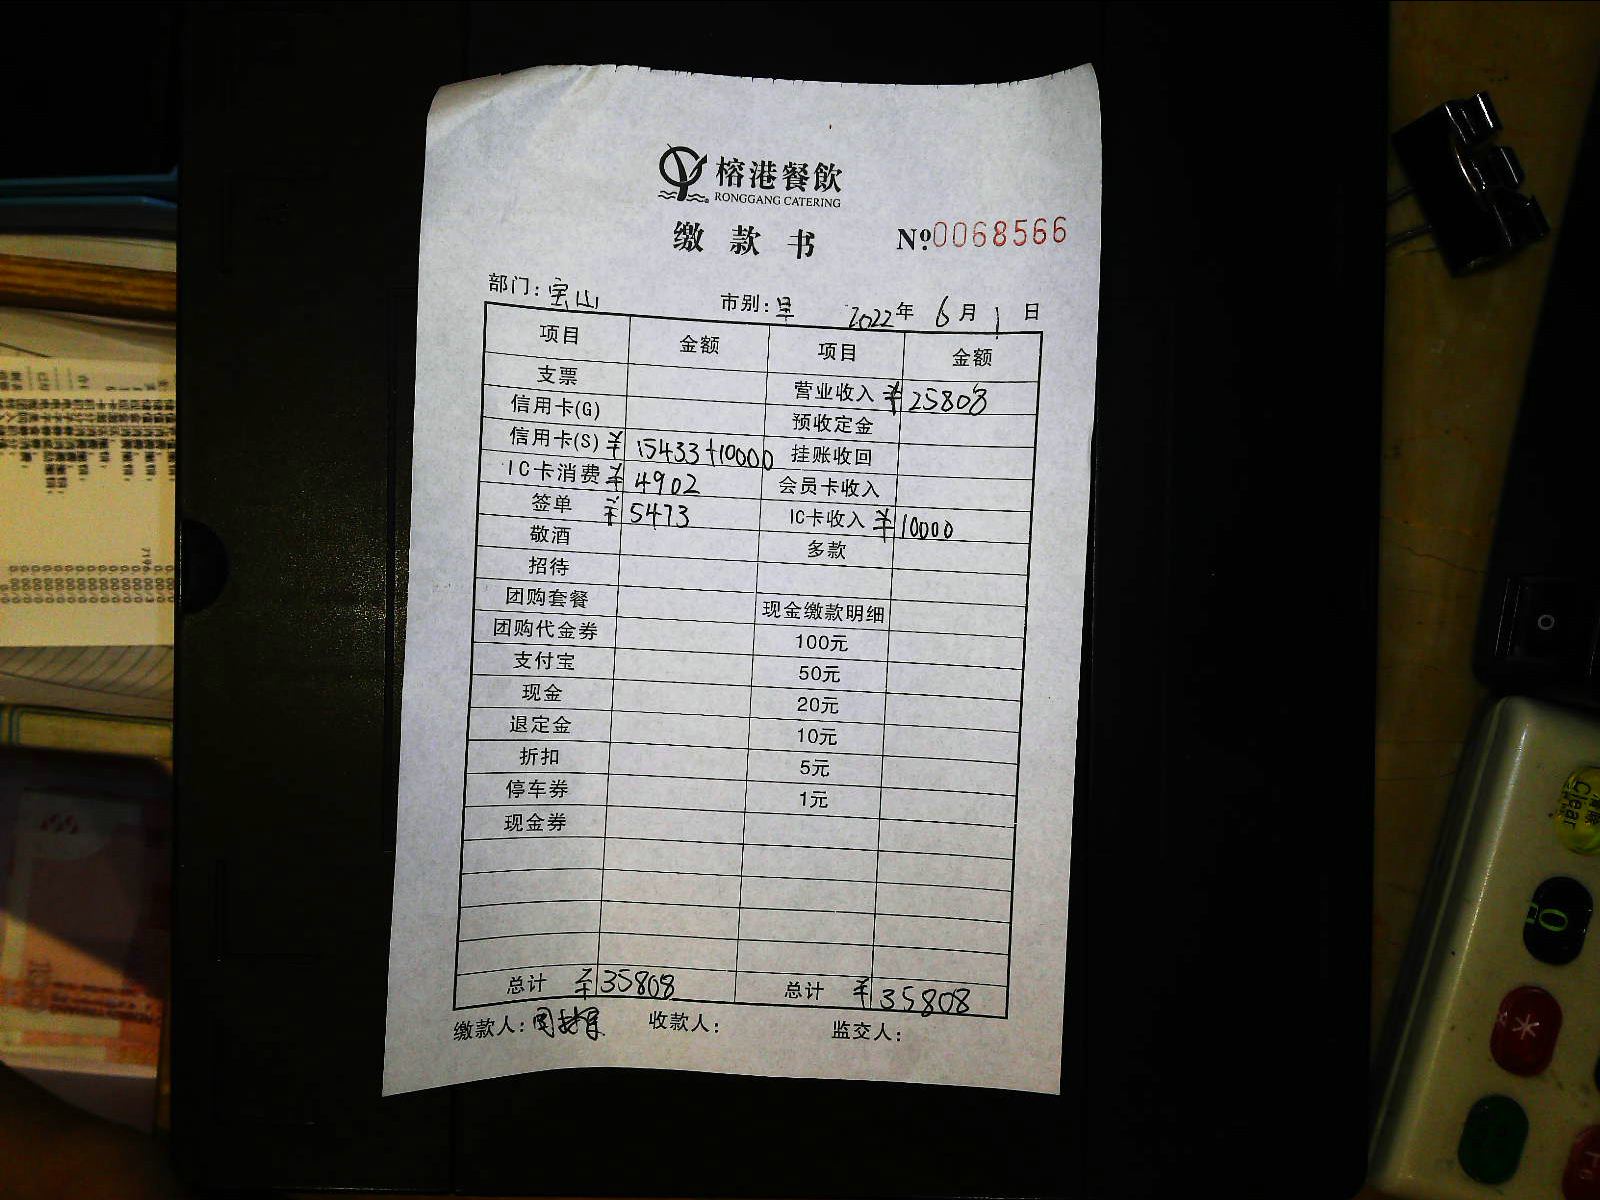 榕港餐飲
RONGGANG CATERING
缴款书 №0068566
部门：宝山 市别：早 2022年 6月 1日
项目 金额 项目 金额
支票 营业收入 ¥ 25808
信用卡(G) 预收定金
信用卡(S) ¥ 15433+10000 挂账收回
IC卡消费 ¥ 4902 会员卡收入
签单 ¥ 5473 IC卡收入 ¥ 10000
敬酒 多款
招待
团购套餐 现金缴款明细
团购代金券 100元
支付宝 50元
现金 20元
退定金 10元
折扣 5元
停车券 1元
现金券
总计 ¥ 35808 总计 ¥ 35808
缴款人： 收款人： 监交人：
Clear
0
*